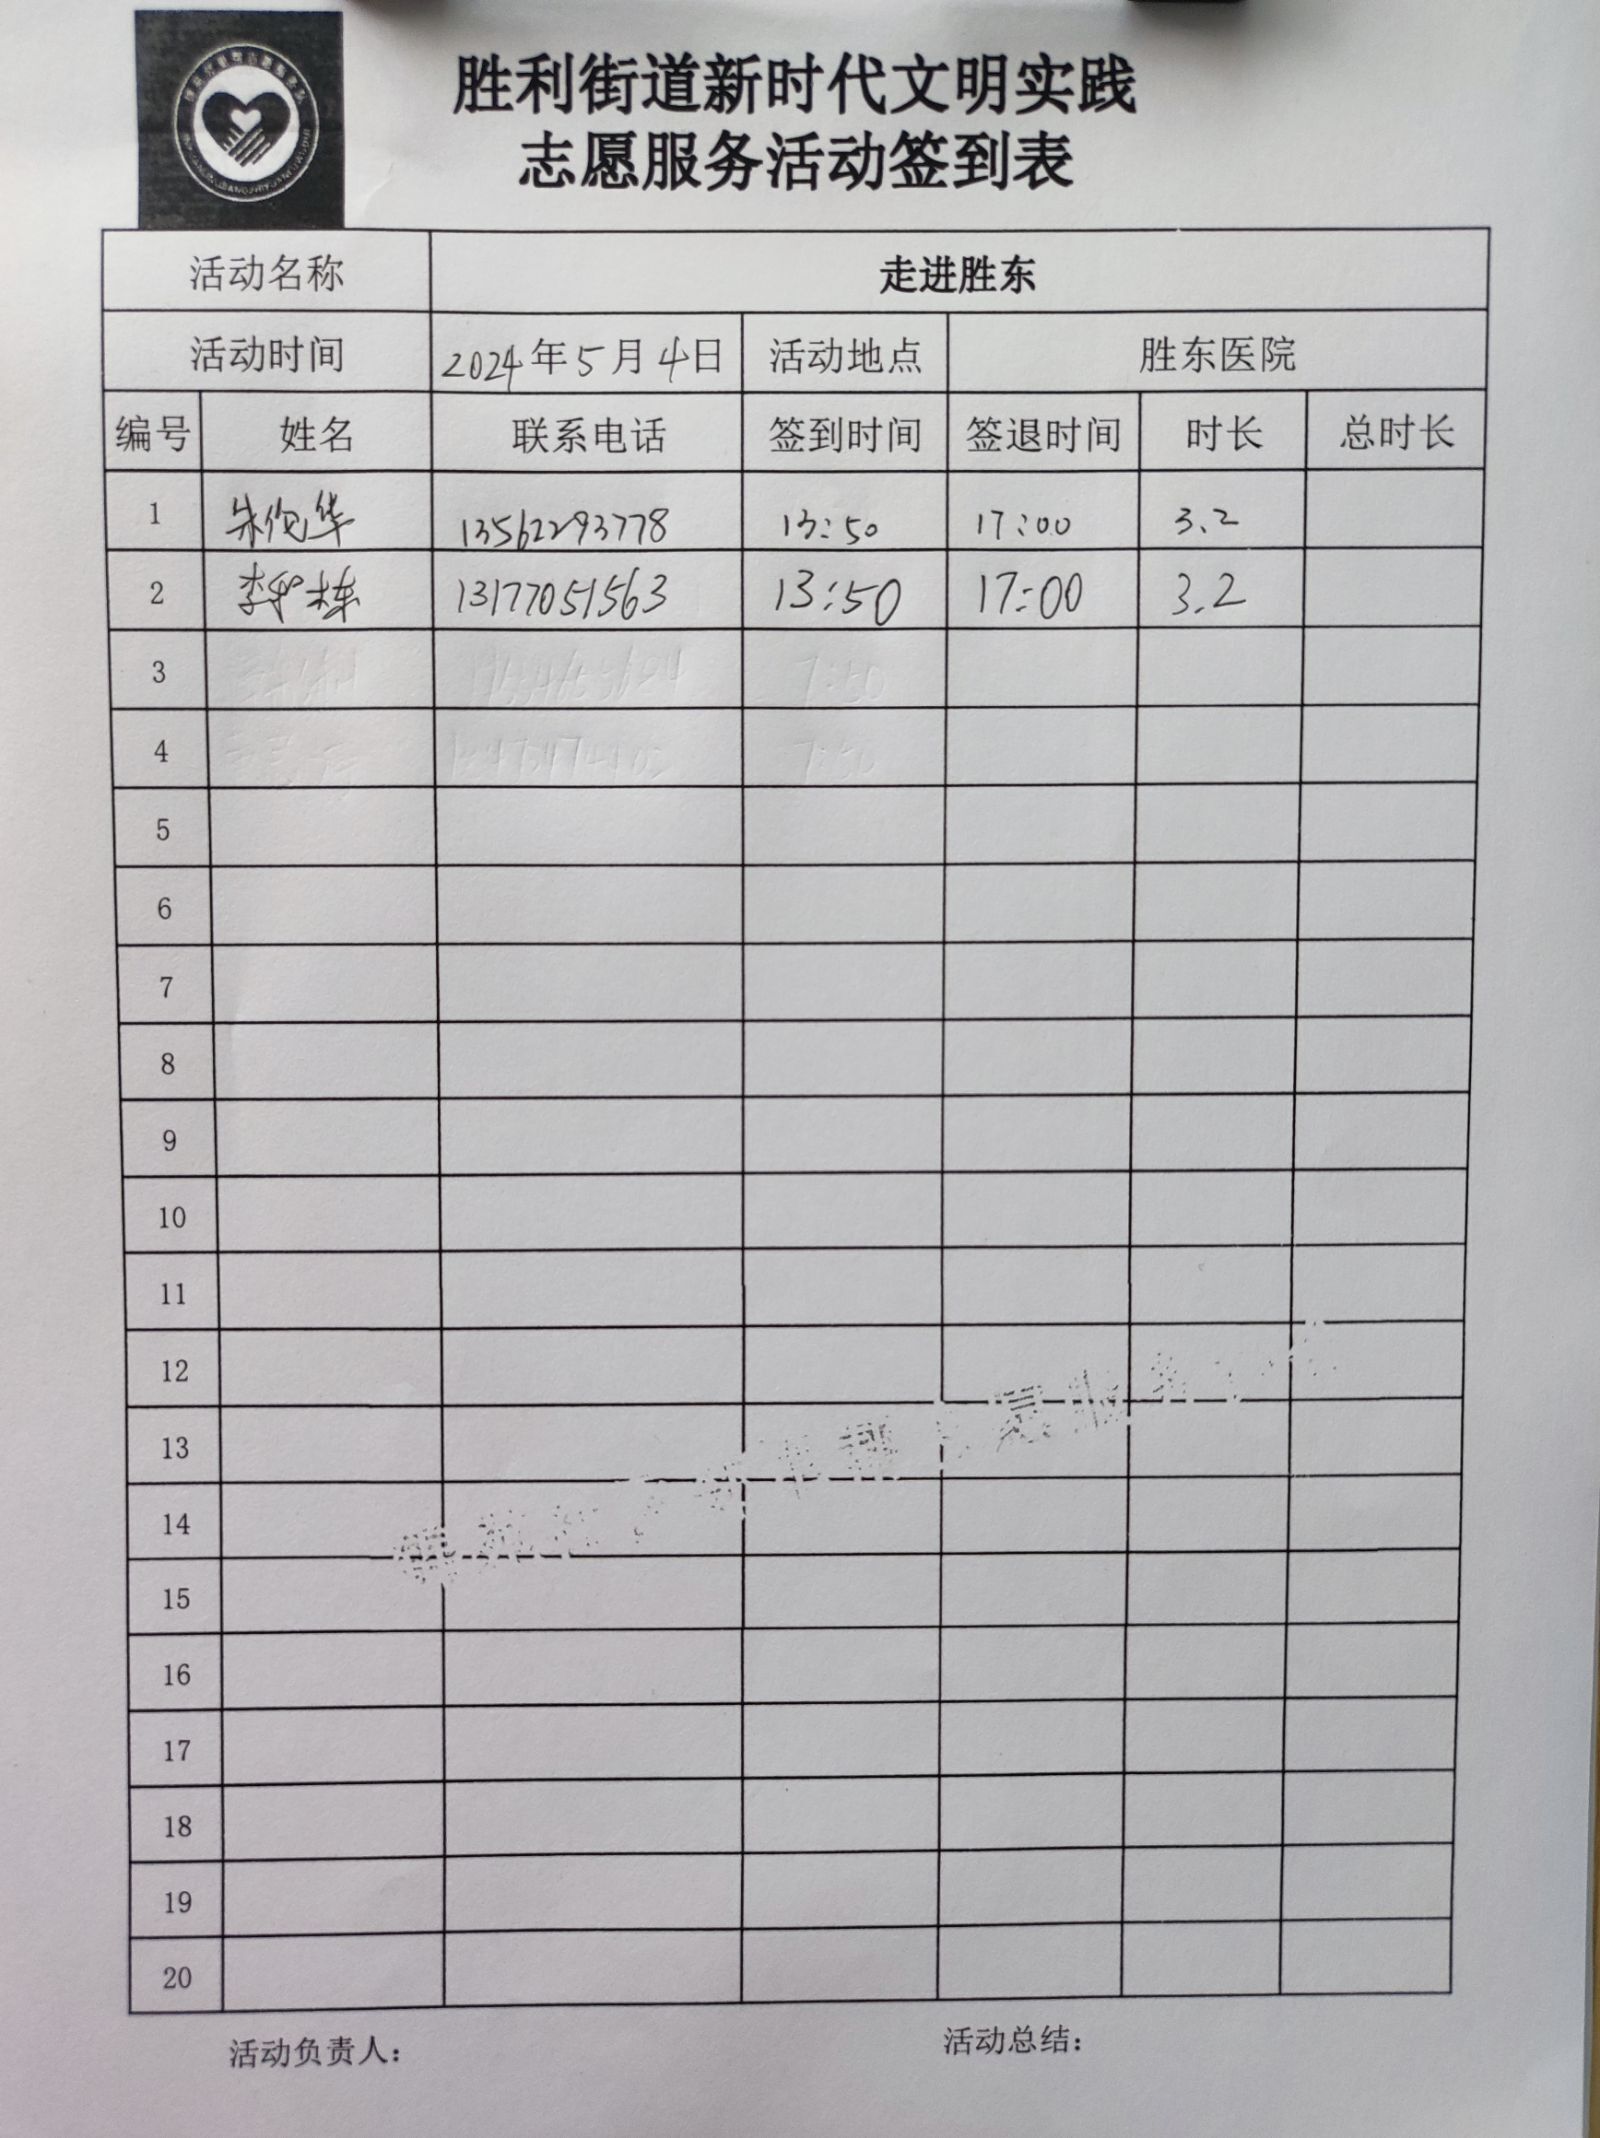 胜利街道新时代文明实践
志愿服务活动签到表
活动名称 走进胜东
活动时间 2024年5月4日 活动地点 胜东医院
编号 姓名 联系电话 签到时间 签退时间 时长 总时长
1 朱伦华 13562293778 13:50 17:00 3.2
2 李 栋 13177051563 13:50 17:00 3.2
3 7:50
4 7:50
5
6
7
8
9
10
11
12
13
14
15
16
17
18
19
20
活动负责人： 活动总结：